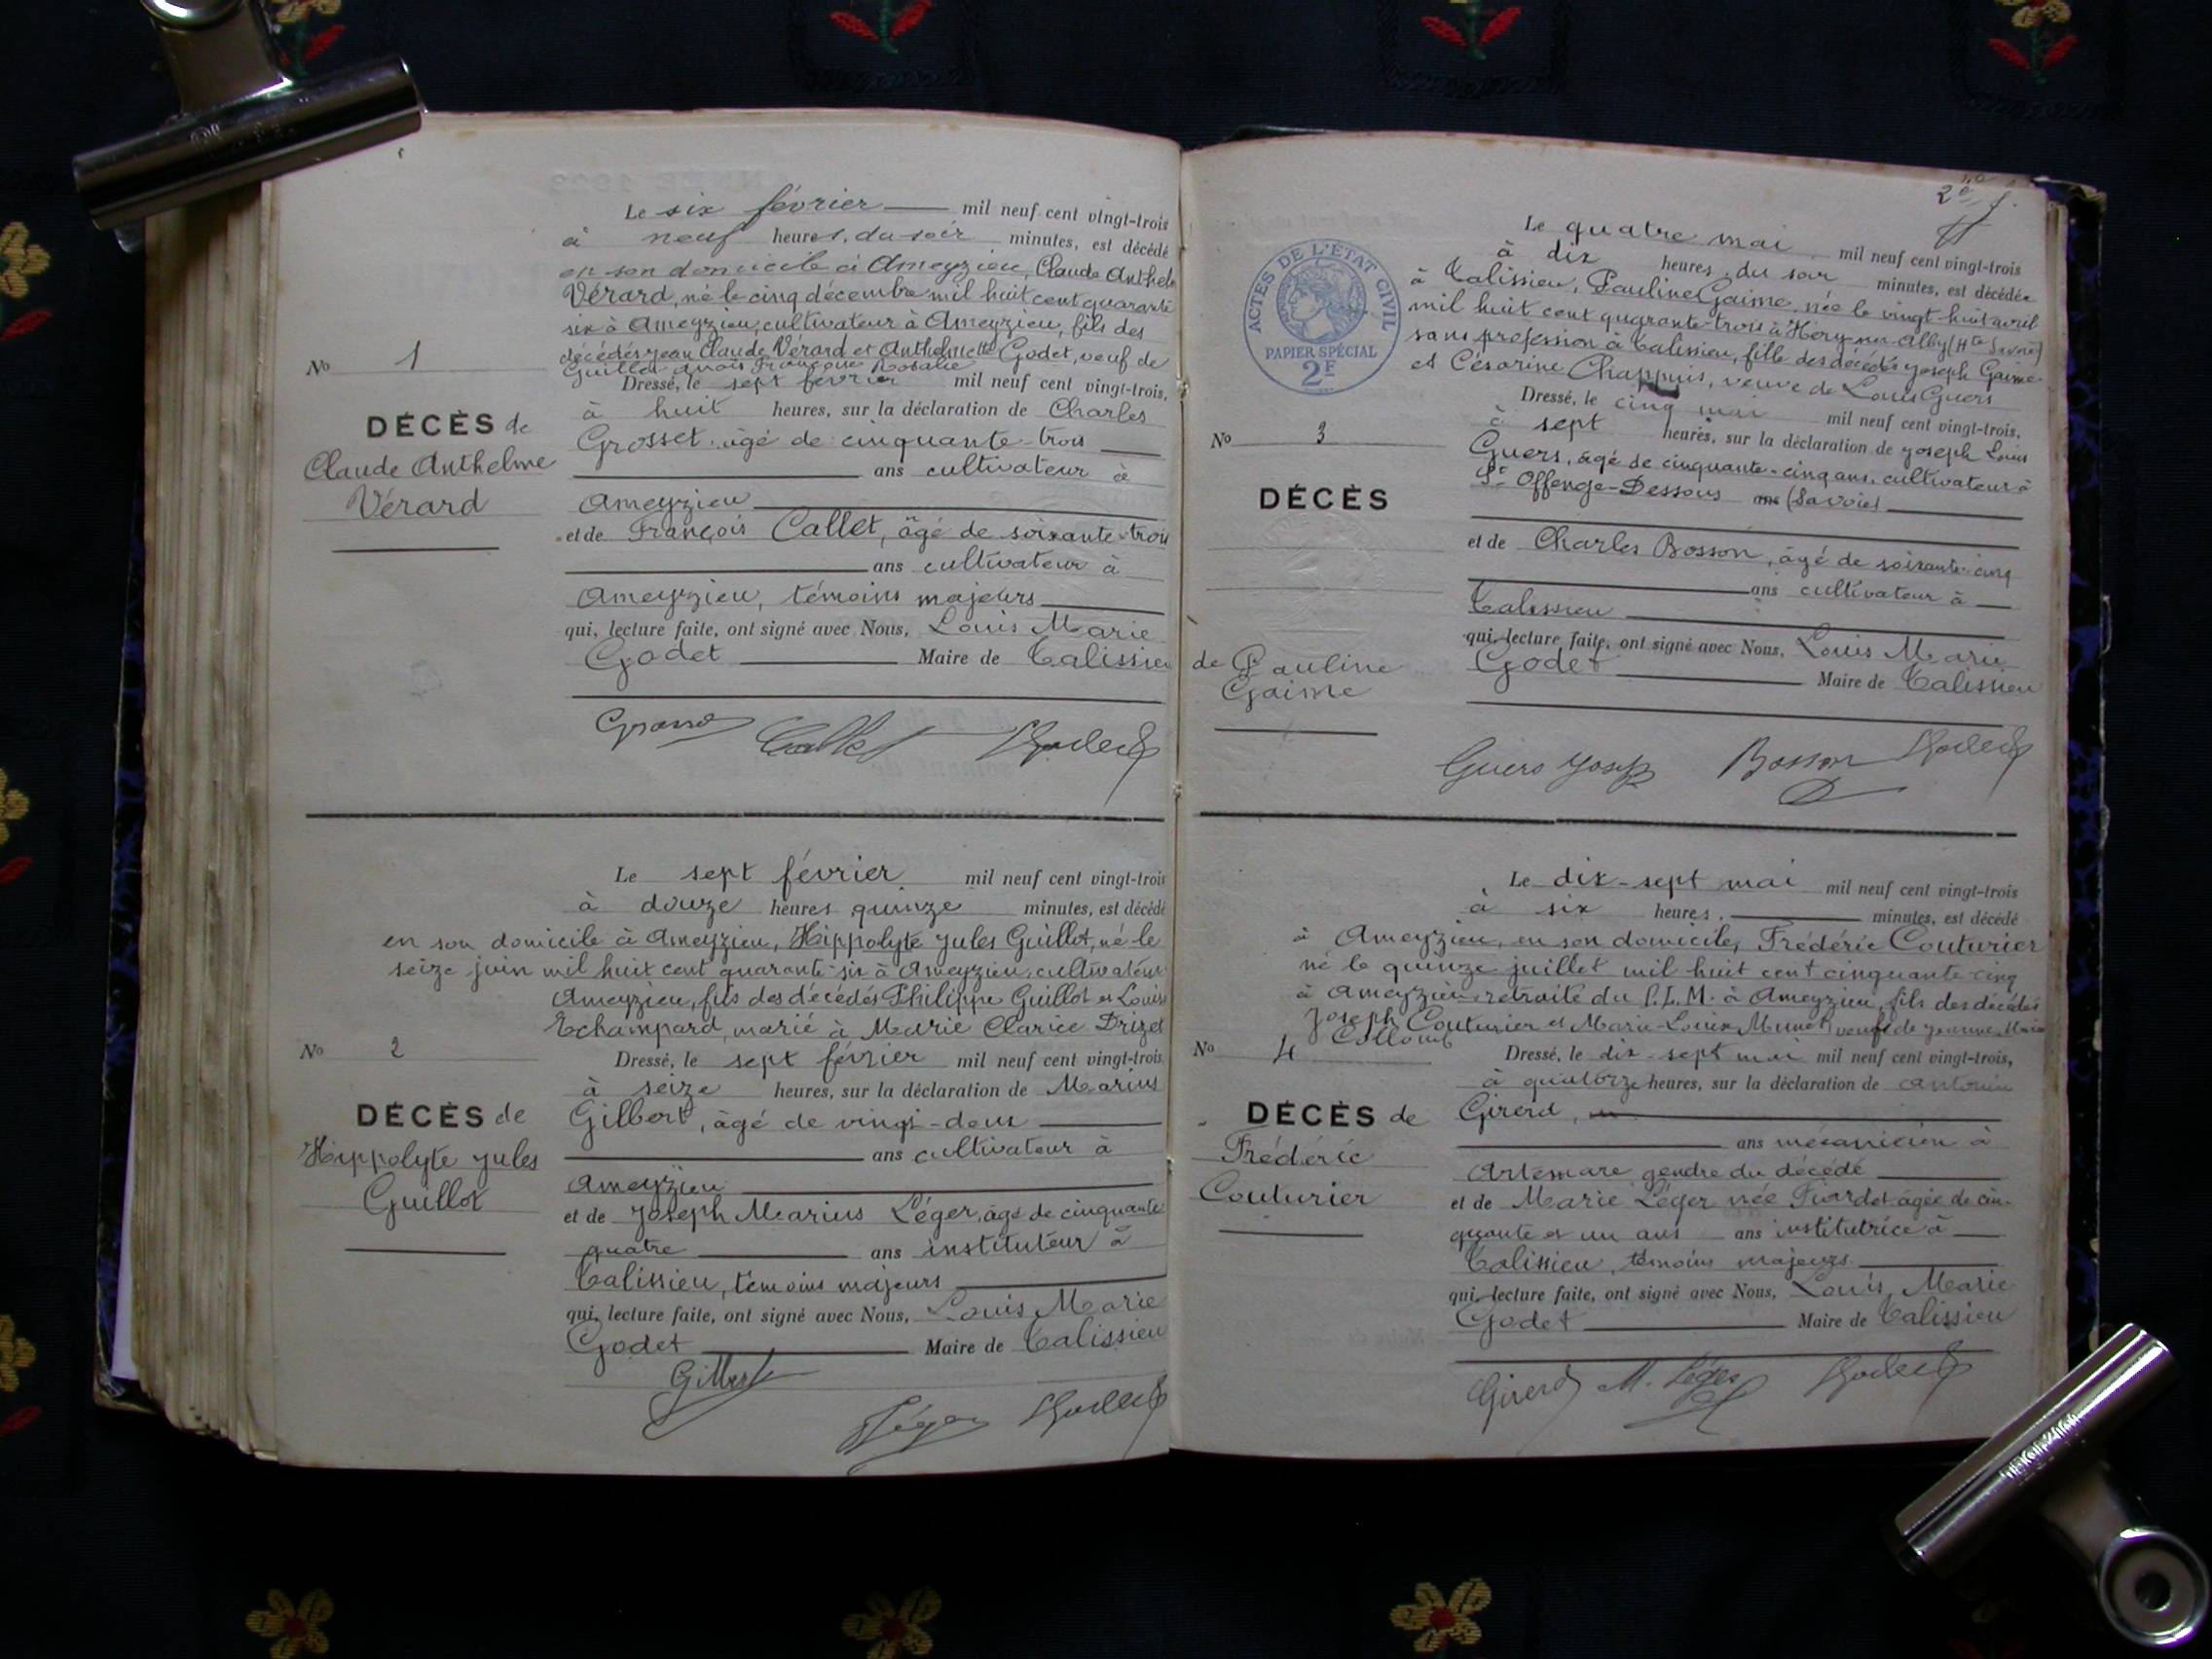 Le six février mil neuf cent vingt-trois
à neuf heures, du soir minutes, est décédé
en son domicile à Ameyzieu, Claude Anthel
Vérard, né le cinq décembre mil huit cent quarante
six à Ameyzieu, cultivateur à Ameyzieu, fils des
décédés Jean Claude Vérard et Anthelmette Godet, veuf de
Guillot Françoise Rosalie
No 1
Dressé, le sept février mil neuf cent vingt-trois,
à huit heures, sur la déclaration de Charles
DÉCÈS de
Claude Anthelme
Vérard
Grosset âgé de cinquante-trois
ans cultivateur à
Ameyzieu
et de François Callet, âgé de soixante-trois
ans cultivateur à
Ameyzieu, témoins majeurs
qui, lecture faite, ont signé avec Nous, Louis Marie
Godet Maire de Talissieu
Grosset Callet LGodet
Le sept février mil neuf cent vingt-trois
à douze heures quinze minutes, est décédé
en son domicile à Ameyzieu, Hippolyte Jules Guillot, né le
seize juin mil huit cent quarante-six à Ameyzieu, cultivateur
Ameyzieu, fils des décédés Philippe Guillot et Louise
Echampard, marié à Marie Clarice Drizet
No 2
Dressé, le sept février mil neuf cent vingt-trois
à seize heures, sur la déclaration de Marius
DÉCÈS de
Hippolyte Jules
Guillot
Gilbert, âgé de vingt-deux
ans cultivateur à
Ameyzieu
et de Joseph Marius Léger, âgé de cinquante
quatre ans instituteur à
Talissieu, témoins majeurs
qui, lecture faite, ont signé avec Nous, Louis Marie
Godet Maire de Talissieu
Gilbert
Léger LGodet
2e f.
ACTES DE L'ÉTAT CIVIL
PAPIER SPÉCIAL
2F
Le quatre mai mil neuf cent vingt-trois
à dix heures, du soir minutes, est décédée
à Talissieu, Pauline Gaime, née le vingt-huit avril
mil huit cent quarante-trois à Héry-sur-Alby (Hte Savoie)
sans profession à Talissieu, fille des décédés Joseph Gaime
et Césarine Chappuis, veuve de Louis Guers
Dressé, le cinq mai mil neuf cent vingt-trois,
à sept heures, sur la déclaration de Joseph Louis
No 3
Guers, âgé de cinquante-cinq ans, cultivateur à
St Offenge-Dessous (Savoie)
DÉCÈS
et de Charles Bosson, âgé de soixante-cinq
ans cultivateur à
Talissieu
qui, lecture faite, ont signé avec Nous, Louis Marie
de Pauline
Gaime
Godet Maire de Talissieu
Guers Joseph Bosson LGodet
Le dix-sept mai mil neuf cent vingt-trois
à six heures, minutes, est décédé
à Ameyzieu, en son domicile, Frédéric Couturier
né le quinze juillet mil huit cent cinquante-cinq
à Ameyzieu, retraité du P.L.M. à Ameyzieu, fils des décédés
Joseph Couturier et Marie-Louise veuf de Jeanne Marie
Collomb
No 4
Dressé, le dix-sept mai mil neuf cent vingt-trois,
à quatorze heures, sur la déclaration de Antonin
DÉCÈS de
Frédéric
Couturier
Girerd,
ans mécanicien à
Artemare gendre du décédé
et de Marie Léger née âgée de cin-
quante et un ans ans institutrice à
Talissieu, témoins majeurs
qui, lecture faite, ont signé avec Nous, Louis Marie
Godet Maire de Talissieu
Girerd M. Léger LGodet